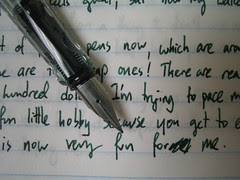 but now my
t of pens now, which are
are ones! There are
hundred I'm trying to pace m
fun little hobby because you get to e
is now very fun for me.